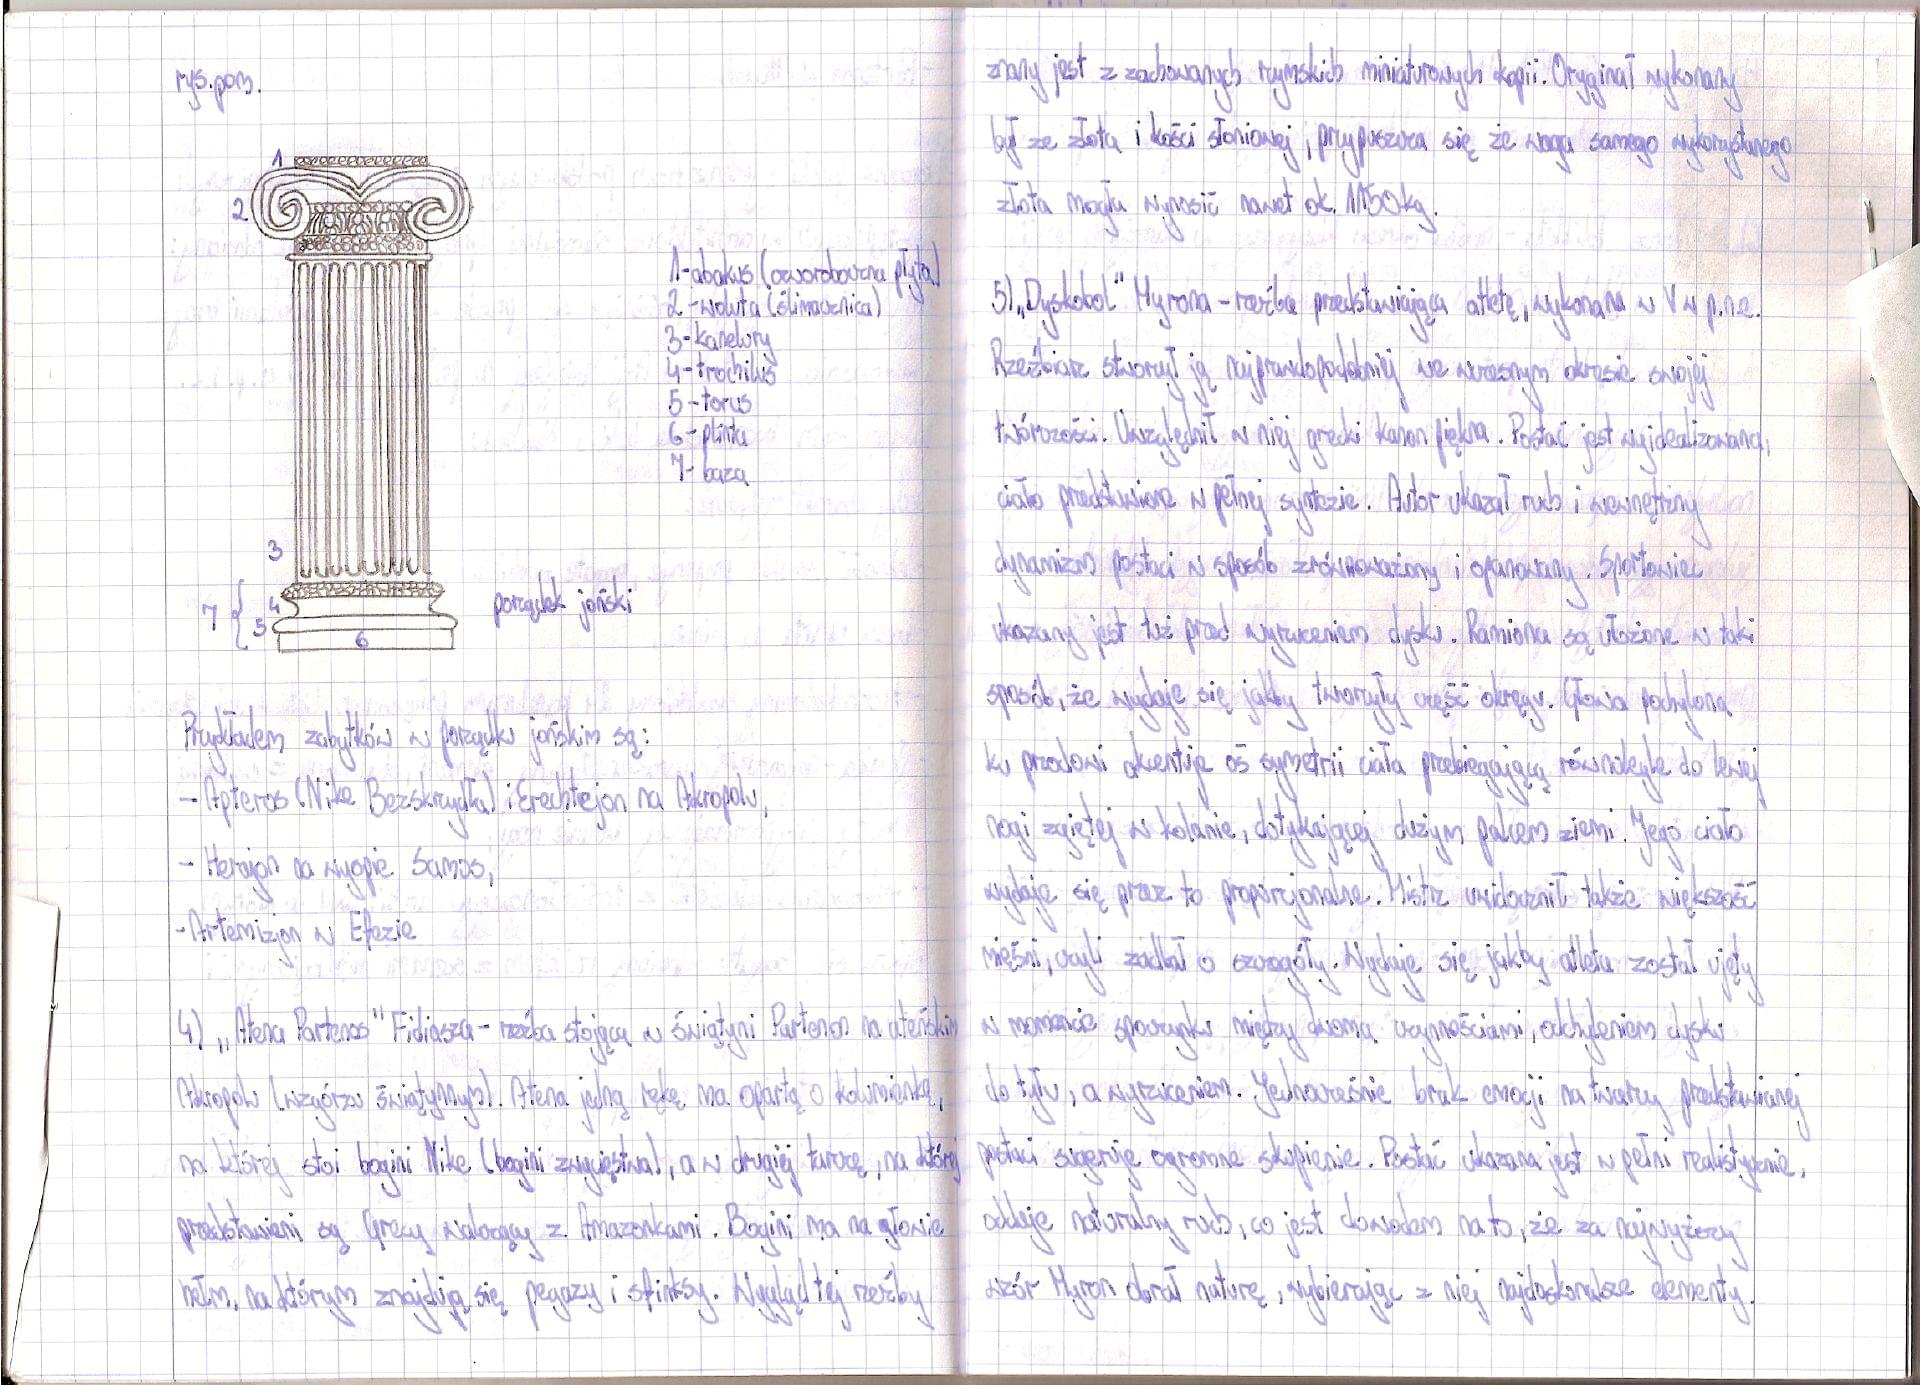 rys.pom.
1
2
3
7 { 4
5
6
porządek joński
1-abakus (czworoboczna płyta)
2-woluta (ślimacznica)
3-kanelury
4-trochilus
5-torus
6-plinta
7-baza
Przykładem zabytków w porządku jońskim są:
- Apteros (Nike Bezskrzydła) i Erechtejon na Akropolu,
- Herajon na wyspie Samos,
-Artemizjon w Efezie
4) „Atena Partenos" Fidiasza - rzeźba stojąca w świątyni Partenon na ateńskim
Akropolu (wzgórzu świątynnym). Atena jedną rękę ma opartą o kolumienkę,
na której stoi bogini Nike (bogini zwycięstwa), a w drugiej tarczę, na której
przedstawieni są Grecy walczący z Amazonkami. Bogini ma na głowie
hełm, na którym znajdują się pegazy i sfinksy. Wygląd tej rzeźby
znany jest z zachowanych rzymskich miniaturowych kopii. Oryginał wykonany
był ze złota i kości słoniowej, przypuszcza się że waga samego wykorzystanego
złota mogła wynosić nawet ok. 1150kg.
5) „Dyskobol" Myrona - rzeźba przedstawiająca atletę, wykonana w V w p.n.e.
Rzeźbiarz stworzył ją najprawdopodobniej we wczesnym okresie swojej
twórczości. Uwzględnił w niej grecki kanon piękna. Postać jest wyidealizowana,
ciało przedstawione w pełnej syntezie. Autor ukazał ruch i wewnętrzny
dynamizm postaci w sposób zrównoważony i opanowany. Sportowiec
ukazany jest tuż przed wyrzuceniem dysku. Ramiona są ułożone w taki
sposób, że wydaje się jakby tworzyły część okręgu. Głowa pochylona
ku przodowi akcentuje oś symetrii ciała przebiegającą równolegle do lewej
nogi zgiętej w kolanie, dotykającej dużym palcem ziemi. Jego ciało
wydaje się przez to proporcjonalne. Mistrz uwidocznił także większość
mięśni, czyli zadbał o szczegóły. Wydaje się jakby atleta został ujęty
w momencie spoczynku między dwoma czynnościami, odchyleniem dysku
do tyłu, a wyrzuceniem. Jednocześnie brak emocji na twarzy przedstawianej
postaci sugeruje ogromne skupienie. Postać ukazana jest w pełni realistycznie,
oddaje naturalny ruch, co jest dowodem na to, że za najwyższy
wzór Myron obrał naturę, wybierając z niej najdoskonalsze elementy.